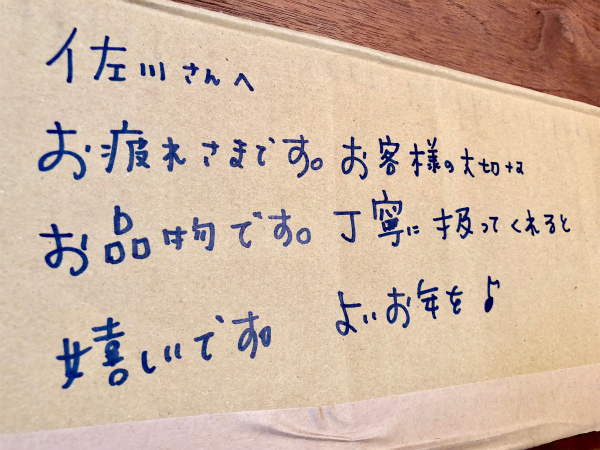 佐川さんへ
お疲れさまです。お客様の大切な
お品物です。丁寧に扱ってくれると
嬉しいです。 よいお年を♪